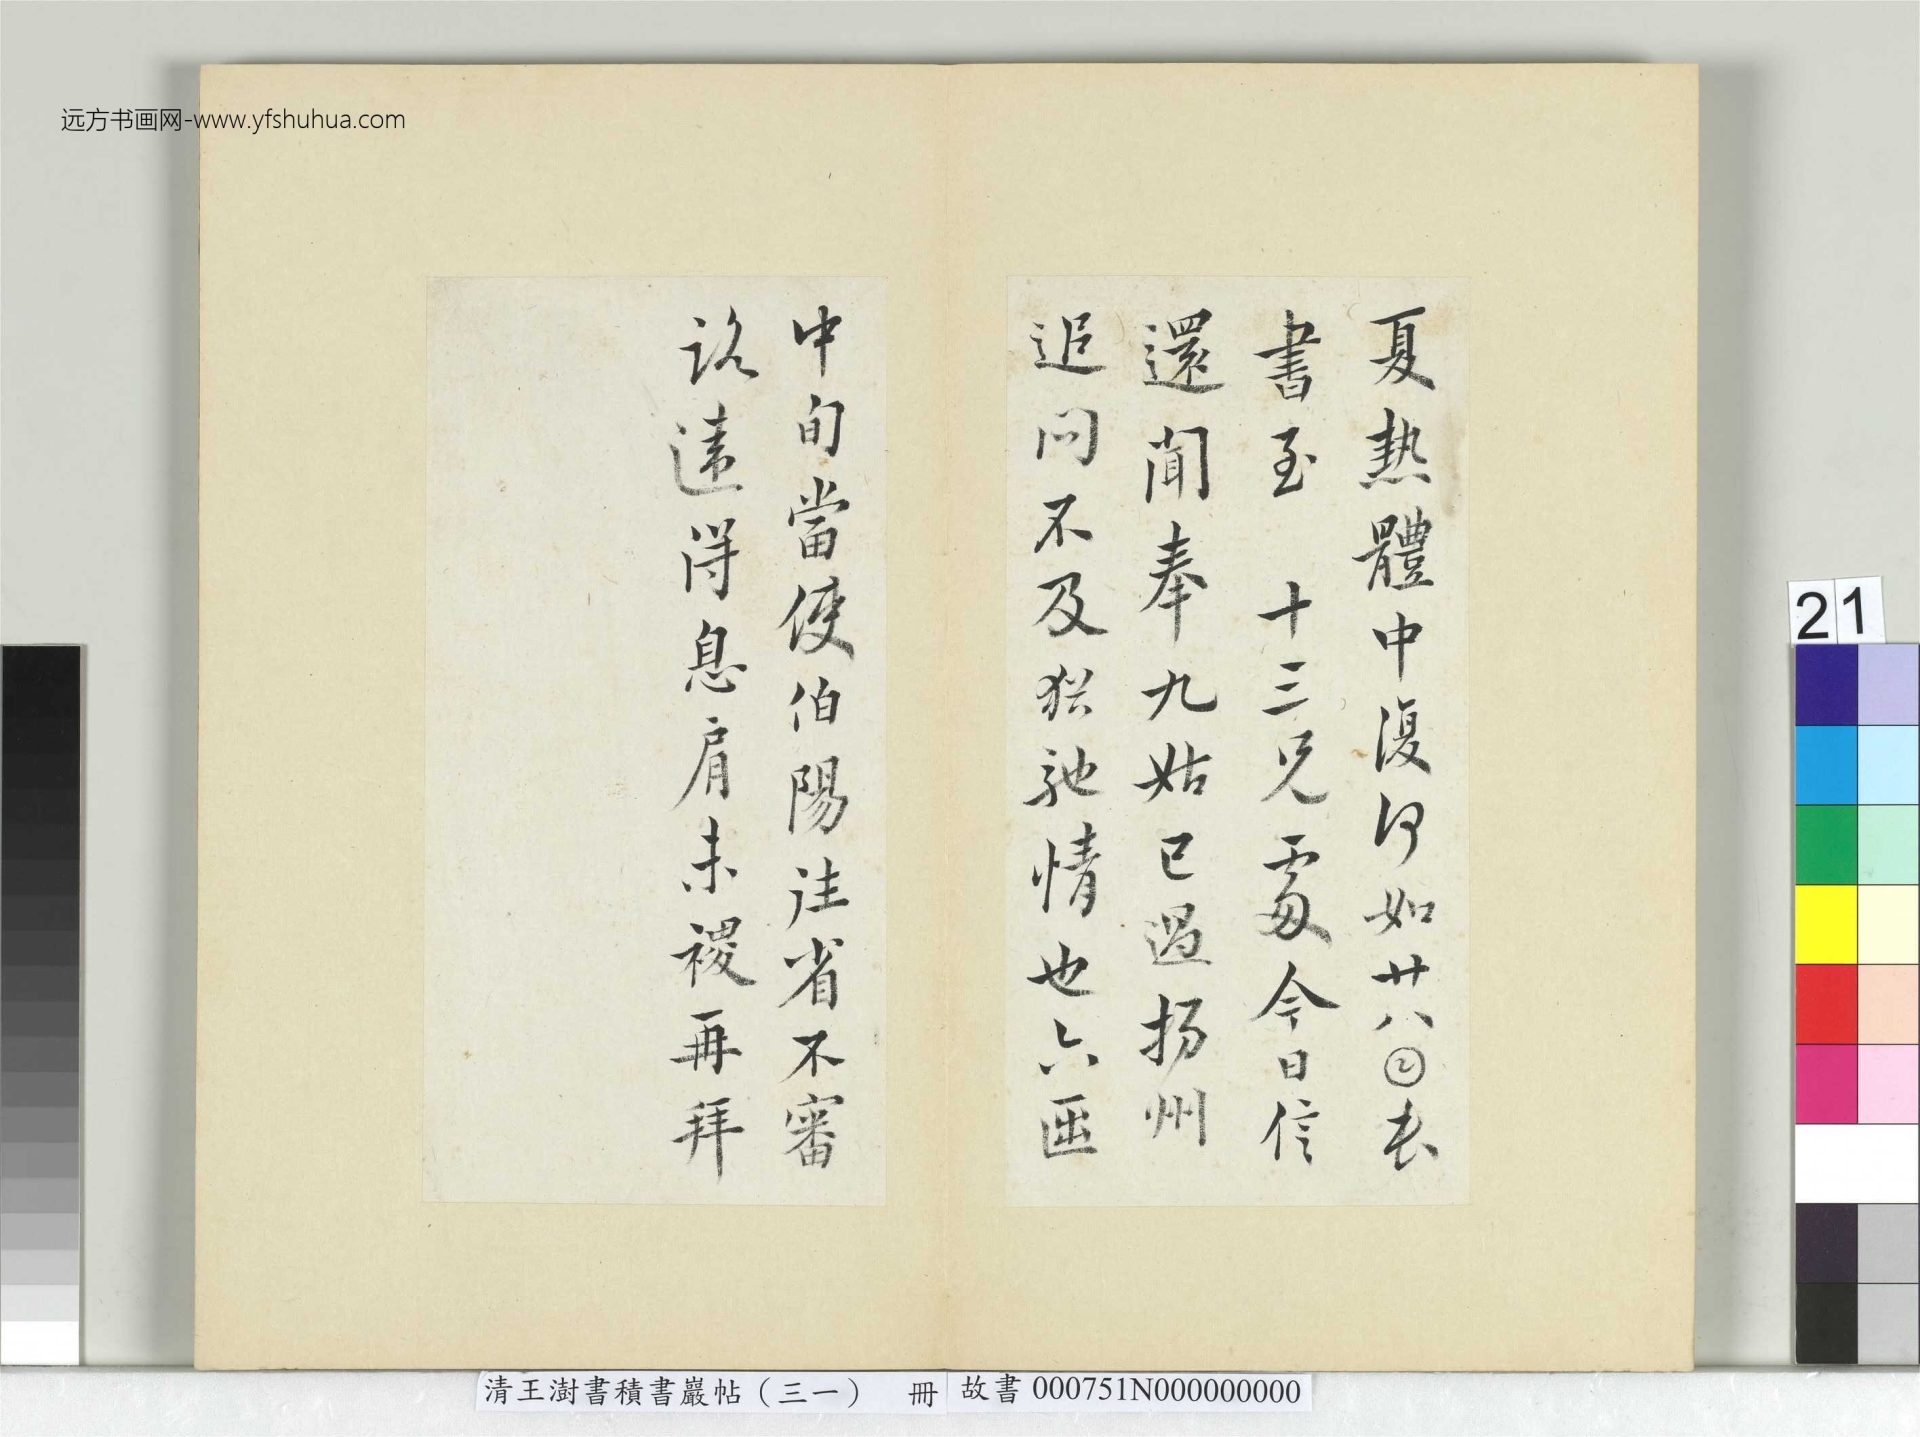 远方书画网-www.yfshuhua.com
夏熱體中復何如廿八𡆠長
書至 十三兄處今日信
還聞奉九姑已過揚州
追問不及猶馳情也六𠥱
中旬當使伯陽往省不審
路遠得息肩未稷再拜
21
清王澍書積書巖帖（三一） 冊 故書 000751N000000000